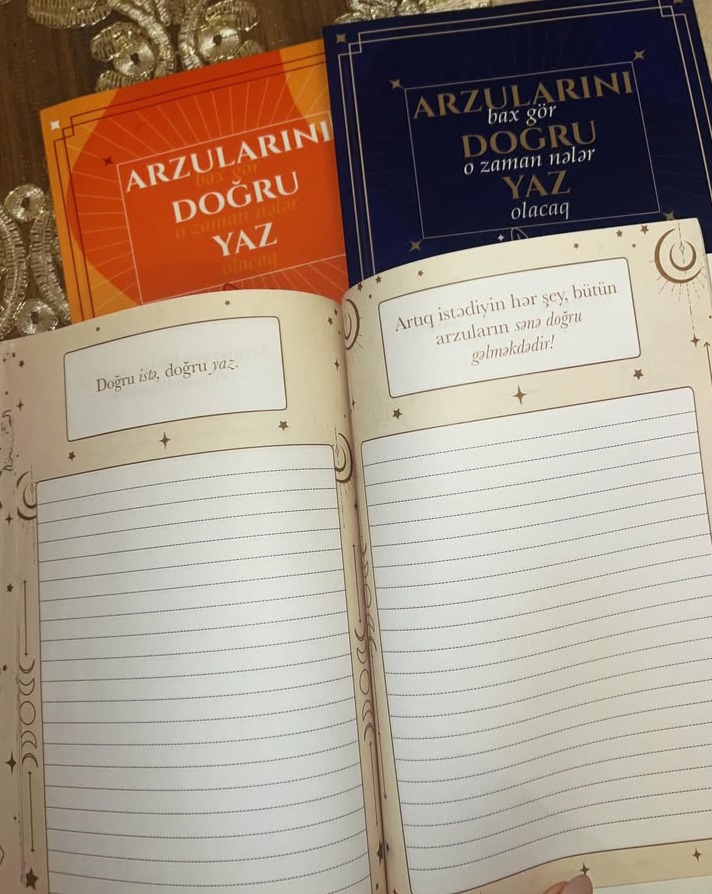 ARZULARINI
bax gör
DOĞRU
o zaman nələr
YAZ
olacaq
ARZULARINI
bax gör
DOĞRU
o zaman nələr
YAZ
olacaq
Doğru istə, doğru yaz.
Artıq istədiyin hər şey, bütün
arzuların sənə doğru
gəlməkdədir!